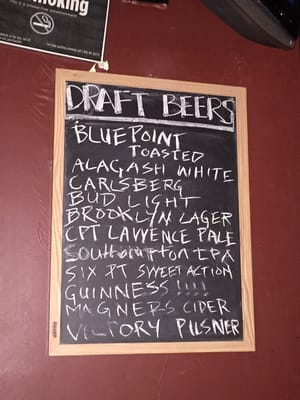 moking
DRAFT BEERS
BLUEPOINT
TOASTED
ALAGASH WHITE
CARLSBERG
BUD LIGHT
BROOKLYN LAGER
CPT LAWENCE PALE
Southampton IPA
SIX PT SWEET ACTION
GUINNESS !!!!
MAGNERS CIDER
VICTORY PILSNER